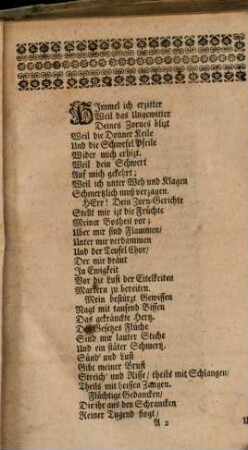 HImmel ich erzitter
Weil das Ungewitter
Deines Zornes blizt
Weil die Donner Keile
Und die Schwefel Pfeile
Wider mich erhizt.
Weil dein Schwert
Auf mich gekehrt;
Weil ich unter Weh und Klagen
Schmertzlich muß verzagen.
HErr! Dein Zorn-Gerichte
Stellt mir izt die Früchte
Meiner Boßheit vor;
Uber mir sind Flammen/
Unter mir verdammen
Und der Teufel Chor/
Der mir dräut
In Ewigkeit
Vor die Lust der Eitelkeiten
Martern zu bereiten.
Mein bestürzt Gewissen
Nagt mit tausend Bissen
Das gekränckte Hertz.
Des Gesetzes Flüche
Sind mir lauter Stiche
Und ein stäter Schmertz.
Sünd' und Lust
Gibt meiner Brust
Streich' und Risse/ theils mit Schlangen/
Theils mit heissen Zangen.
Flüchtige Gedancken/
Die ihr aus den Schrancken
Reiner Tugend flogt/
A 2